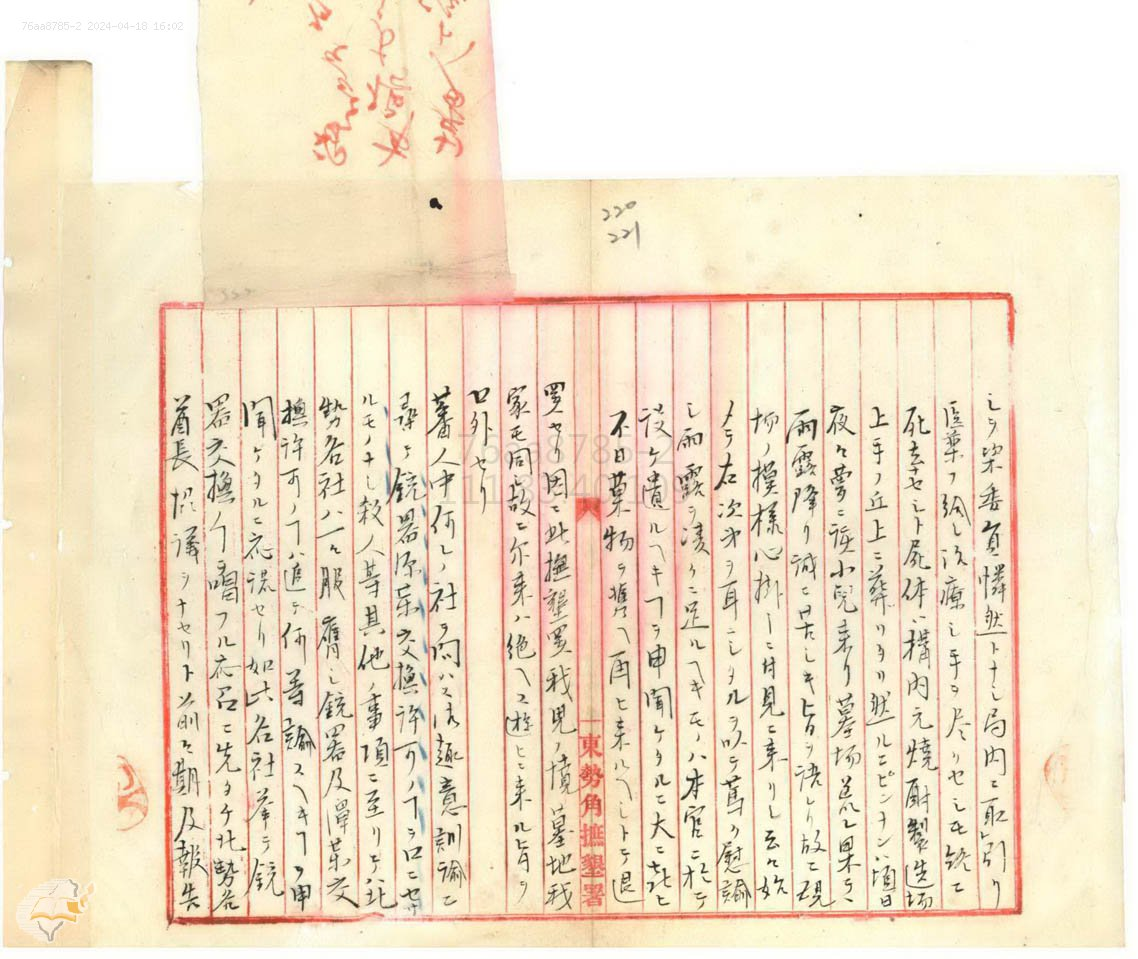 76aa8785-2 2024-04-18 16:02
220
221
シヲ栄委員憐然トナシ局内ニ取引リ
医薬ヲ給シ治療シ手ヲ尽リセシモ終ニ
死去セシト屍体ハ構内元焼酎製造場
上手ノ丘上ニ葬リタリ然ルニピンナンハ頃日
夜々夢ニ該小児来リ墓場荒レ果テ
雨露降リ誠ニ苦シキ旨ヲ語レリ故ニ現
場ノ模様心掛ニ付見ニ来リシ云々始
メテ右次第ヲ耳ニシタルヲ以テ篤ク慰諭
シ雨露ヲ凌クニ足ルヘキモノハ本官ニ於テ
設ケ遺ルヘキヿヲ申聞ケタルニ大ニ喜ヒ
不日菓物ヲ携ヘ再ヒ来ルヘシトテ退
署セリ因ニ此撫墾署我児ノ墳墓地我
家モ同シ故ニ尓来ハ絶ヘス遊ヒニ来ル旨ヲ
口外セリ
蕃人中何レノ社ヲ問ハス御趣意訓諭ニ
尋テ銃器弾薬交換許可ノヿヲ口ニセサ
ルモノナシ殺人等其他ノ事項ニ至リテハ北
勢各社ハ一々服膺シ銃器及弾薬交
換許可ノヿハ追テ何等諭スヘキヿヲ申
聞ケタルニ応諾セリ如此各社挙テ銃
器交換ノヿヲ唱フル故召ニ先タチ北勢各
酋長協議ヲナセリト前々期及報告
東勢角撫墾署
76aa8785-2